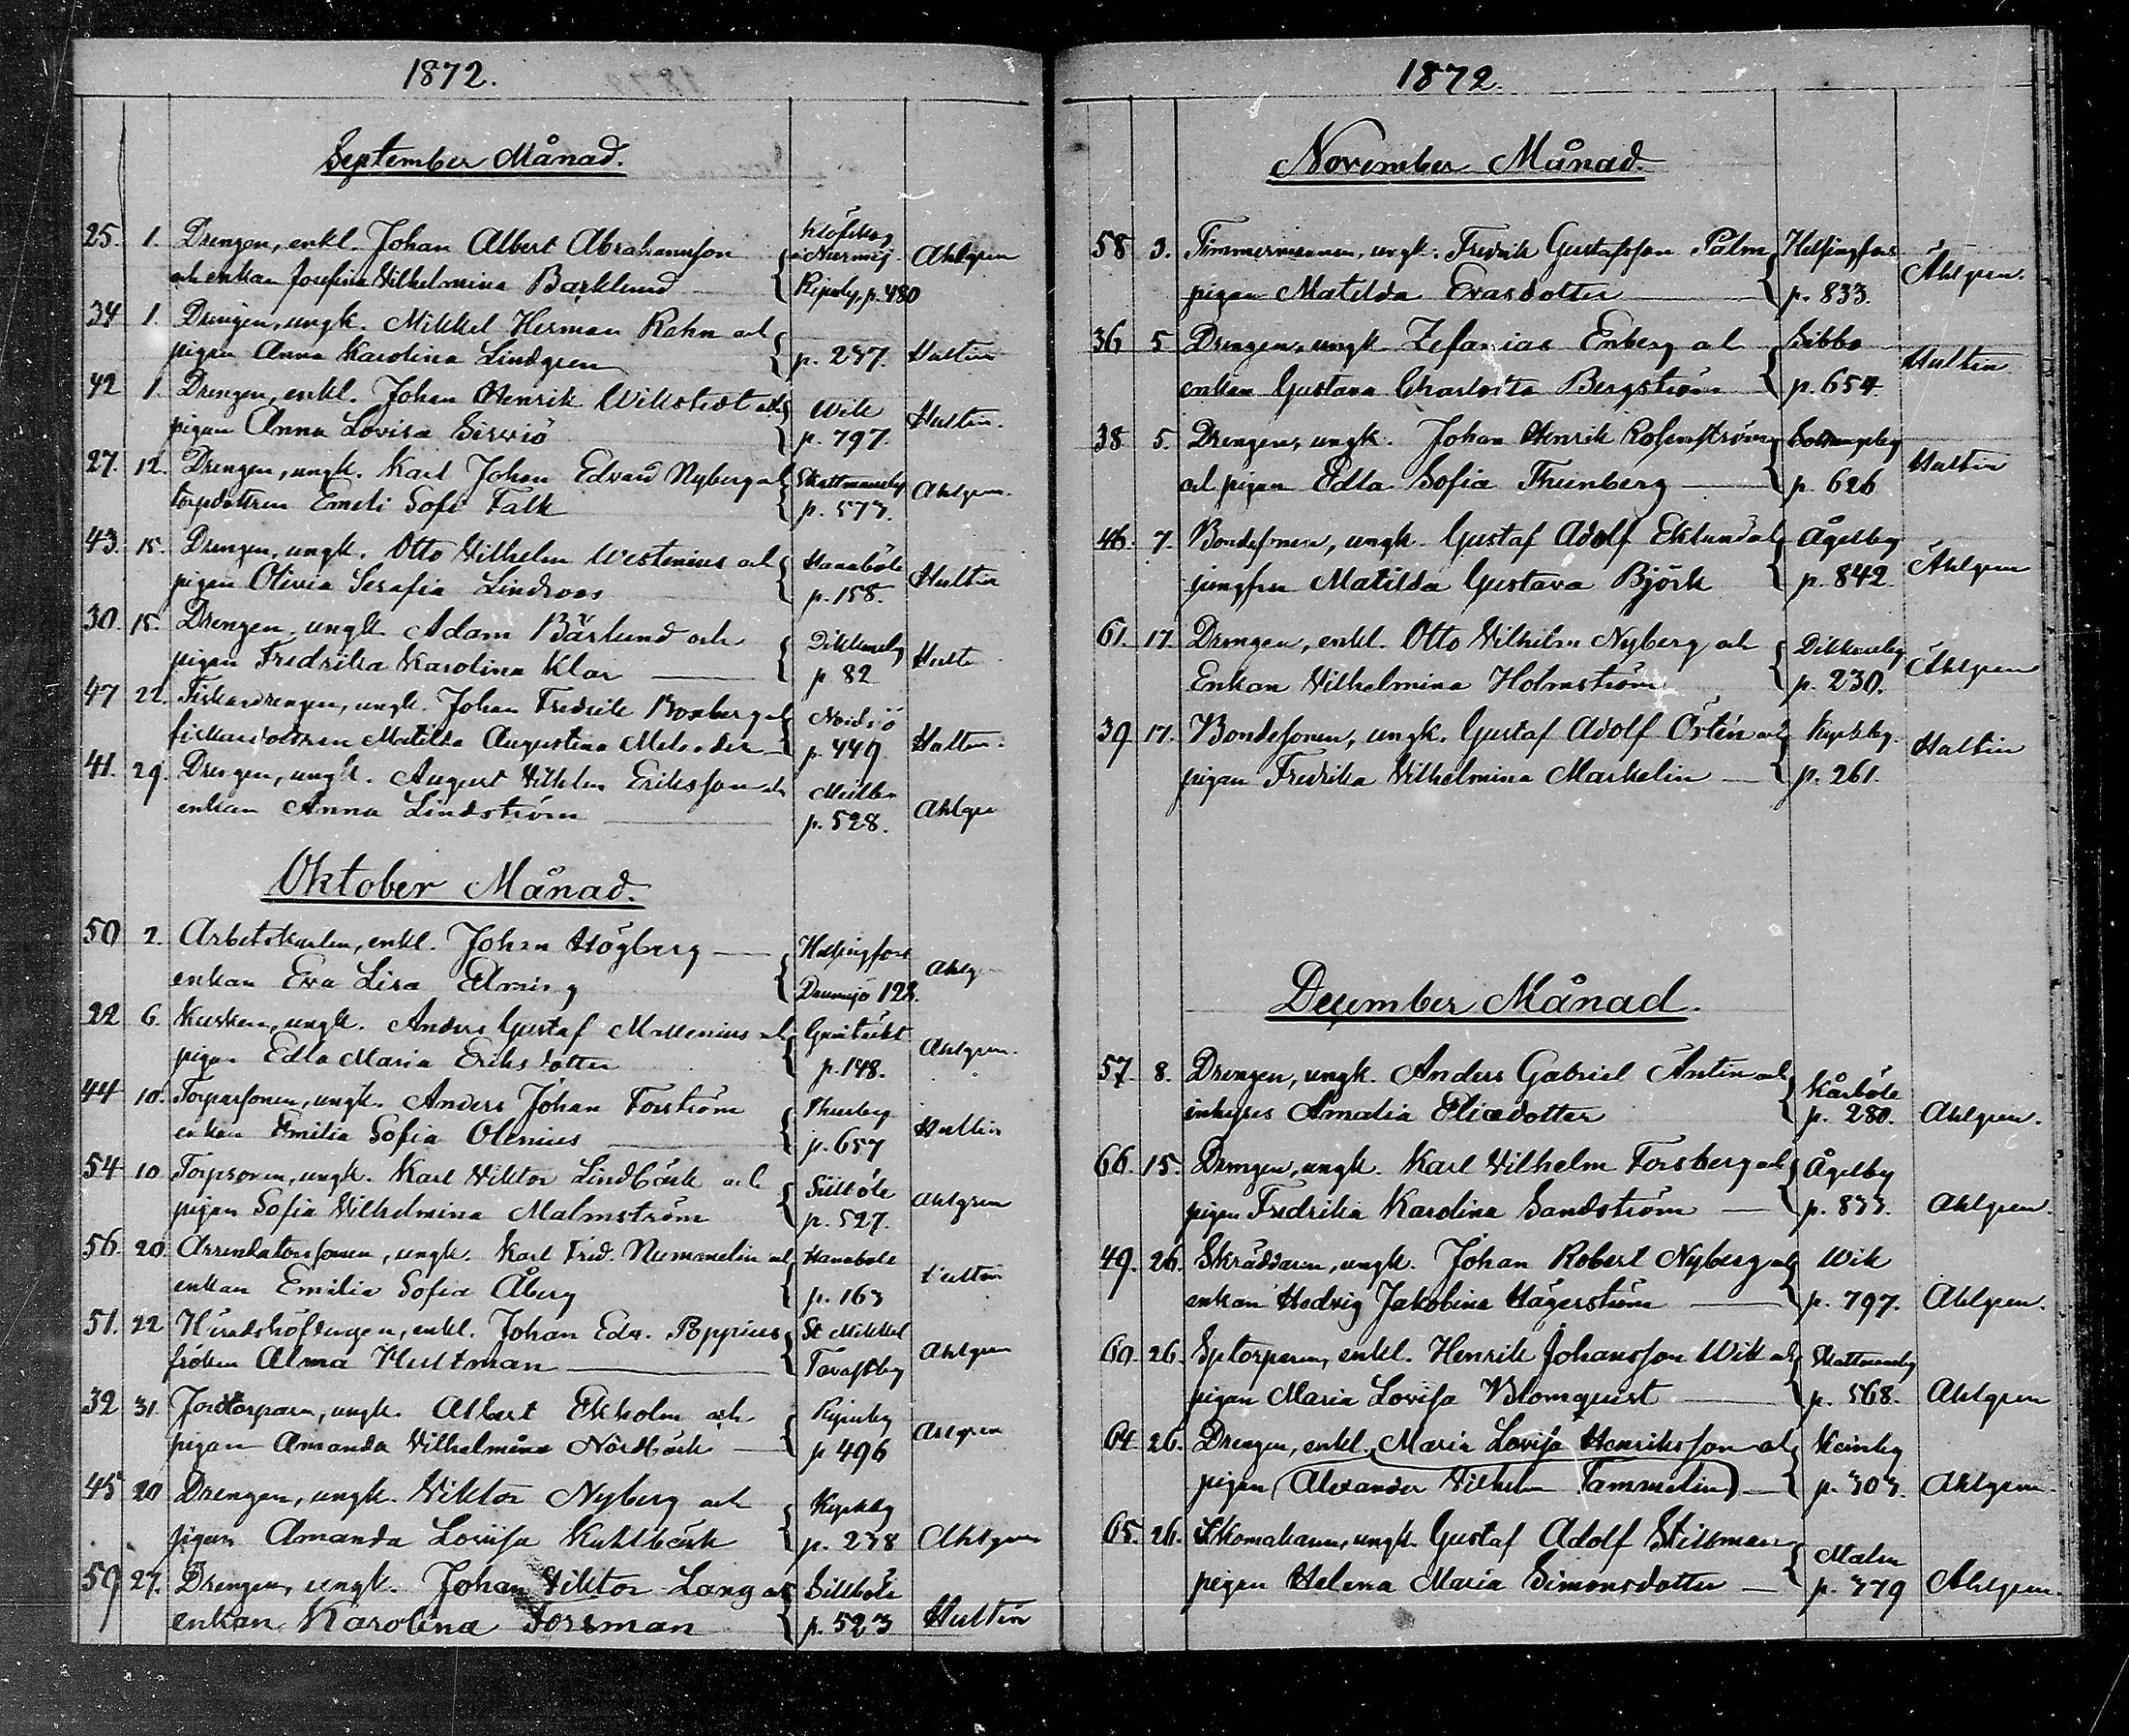 1872.
September Månad.
25. 1. Drengen, enkl. Johan Albert Abrahamsson
och enkan Josefina Vilhelmina Barklund p. 480 Ahlgren
34 1. Drengen, ungk. Mikkel Herman Rahn och
pigan Anna Karolina Lindgren p. 237. Hultin
42 1. Drengen, enkl. Johan Henrik Wikstedt och Wik
pigan Anna Lovisa p. 797. Hultin.
27. 12. Drengen, ungk. Karl Johan Edvard Nyberg och Skattmansby
torpdottren Emeli Sofi Falk p. 573. Ahlgren.
43. 15. Drengen, ungk. Otto Vilhelm Westenius och Hanaböle
pigan Olivia Serafia Lindroos p. 158. Hultin
30. 15. Drengen, ungk. Adam Bärlund och Dickursby
pigan Fredrika Karolina Klar p 82 Hultin
47 22. Fiskardrengen, ungk. Johan Fredrik Boxberg och Nordsjö
fiskardottren Matilda Augustina Melander p. 449. Hultin.
41. 29. Drengen, ungk. August Vilhelm Eriksson och
enkan Anna Lindström p. 528. Ahlgre
Oktober Månad.
50 2. Arbetskarlen, enkl. Johan Högberg Helsingfors
enkan Eva Lisa Elming 128. Ahlg
22 6. Kusken, ungk. Anders Gustaf och
pigan Edla Maria Eriksdotter p. 148. Ahlgren.
44 10. Torparsonen, ungk. Anders Johan Forström
enkan Emilia Sofia Olenius p. 657 Hultin
54 10 Torpsonen, ungk. Karl Viktor Lindbäck och
pigan Sofia Vilhelmina Malmström p. 527. Ahlgren
56. 20. Arrendatorssonen, ungk. Karl Frid. Nummelin och Hanabole
enkan Emilia Sofia Åberg p. 163 Hultin
51. 22 Häradshöfdingen, enkl. Johan Edv. Poppius St Mikkel
fröken Alma Hultman Tavastby Ahlgren
32 31. Jordtorparn, ungk. Albert Ekholm och
pigan Amanda Vilhelmina Nordbäck p 496 Ahlgren
45 20 Drengen, ungk. Viktor Nyberg och Kyrkby
pigan Amanda Lovisa Kuhlbäck p. 238 Ahlgren
59 27. Drengen, ungk. Johan Viktor Lang och Sillböle
enkan Karolina Forsman p. 523 Hultin
1872.
November Månad.
58 3. Timmermannen, ungk. Fredrik Gustafsson Palm Helsingfors
pigan Matilda Evasdotter p. 833. Ahlgren.
36 5 Drengen, ungk. Zefanias Enberg och Sibbo
enkan Gustava Charlotta Bergström p. 654. Hultin
38 5. Drengen, ungk. Johan Henrik Rosenström
och pigan Edla Sofia Thunberg p. 626 Hultin
46. 7. Bondesonen, ungk. Gustaf Adolf Eklund och Ågelby
jungfru Matilda Gustava Björk p. 842 Ahlgren
61. 17. Drengen, enkl. Otto Vilhelm Nyberg och Dikkursby
Enkan Vilhelmina Holmström p. 230. Ahlgren
39 17. Bondesonen, ungk. Gustaf Adolf Östén och Kyrkby.
pigan Fredrika Vilhelmina Markelin p. 261. Hultin
December Månad.
57. 8. Drengen, ungk. Anders Gabriel Äntin och Kårböle
inhyses Amalia Elisedotter p. 280. Ahlgren.
66. 15. Drengen, ungk. Karl Vilhelm Forsberg och Ågelby
pigan Fredrika Karolina Sandström p. 833. Ahlgren.
49. 26. Skräddaren, ungk. Johan Robert Nyberg och Wik
enkan Hedvig Jakobina Hägerström p. 797. Ahlgren.
60. 26. Sptorparen, enkl. Henrik Johansson Wik och Skattmansby
pigan Maria Lovisa Blomquist p. 568. Ahlgren
64. 26. Drengen, enkl. Maria Lovisa Henriksson och
pigan (Alexander Vilhelm Tammelin) p. 303. Ahlgren.
65. 26. Skomakaren, ungk. Gustaf Adolf Stillman Malm
pigan Helena Maria Simonsdotter p. 379 Ahlgren.